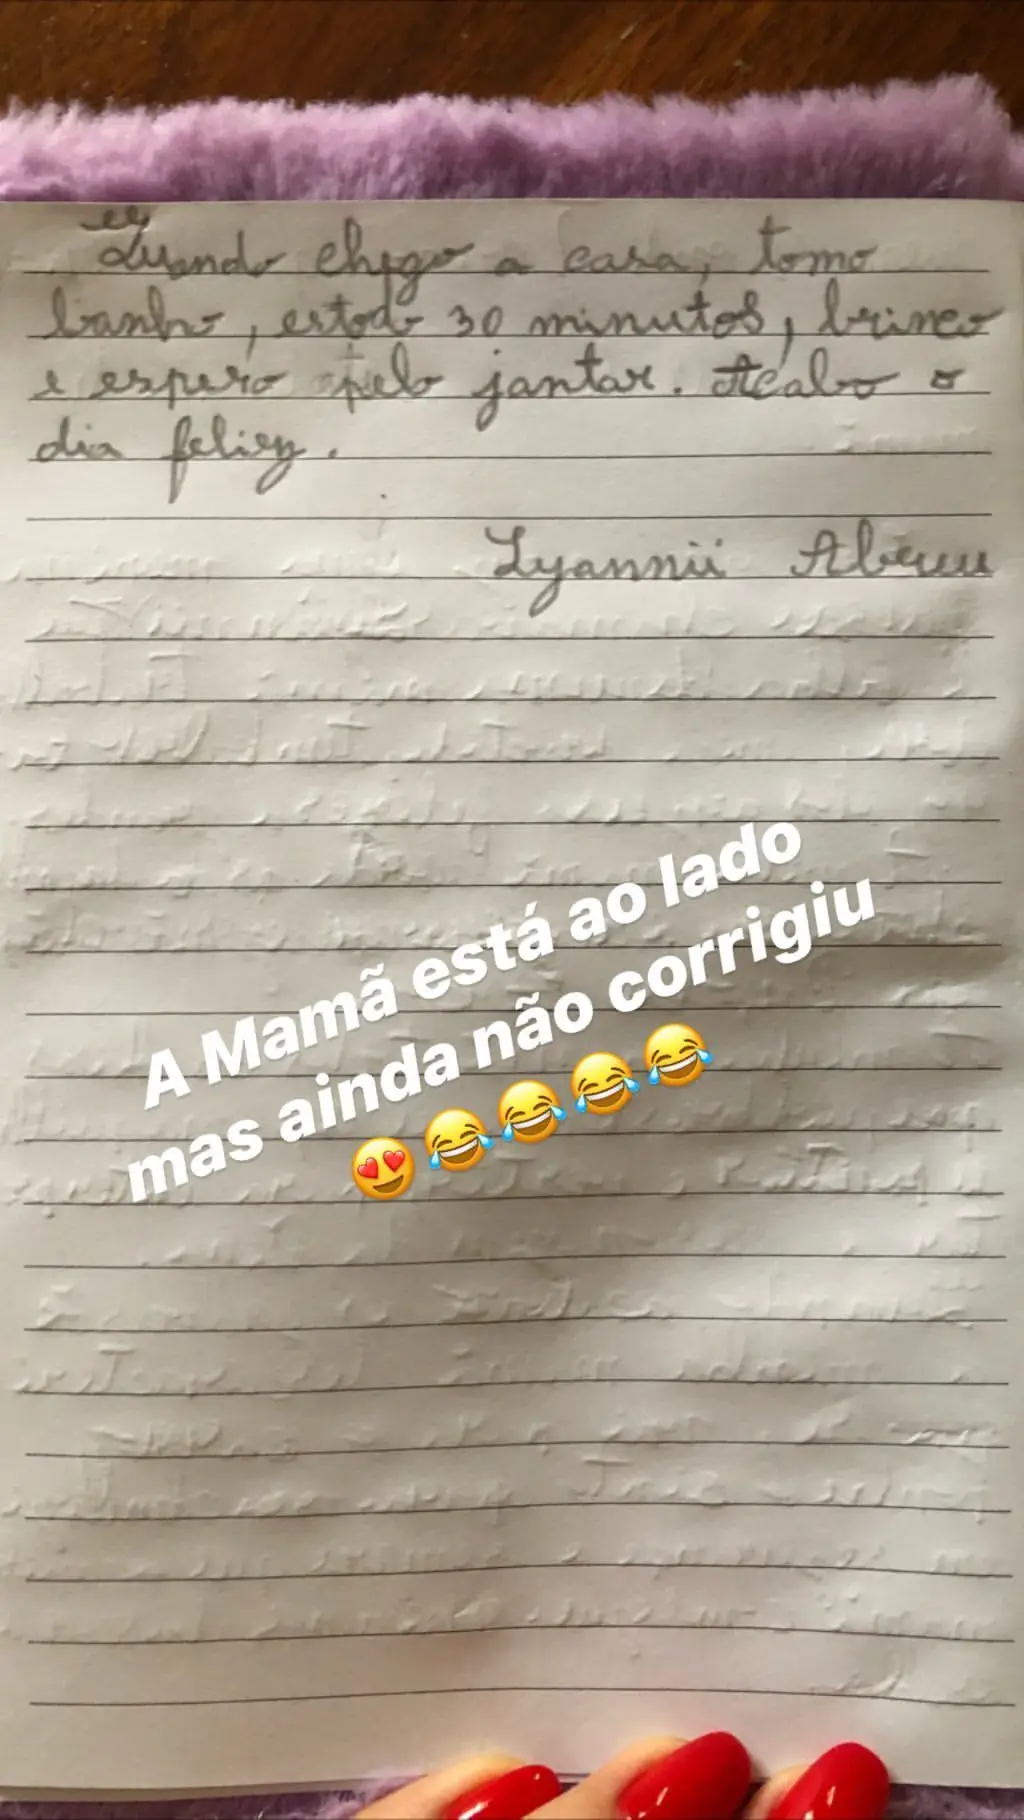 Quando chego a casa, tomo
banho, estodo 30 minutos, brinco
e espero pelo jantar. Acabo o
dia feliz.
Lyannii Abreu
A Mamã está ao lado
mas ainda não corrigiu
😍😂😂😂😂